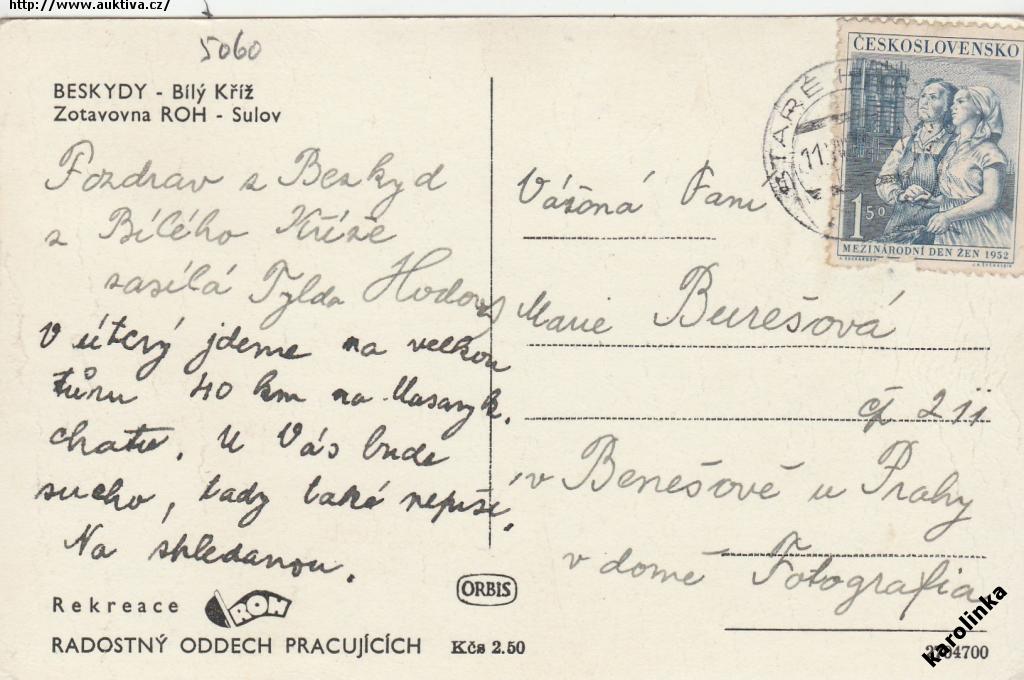 http://www.auktiva.cz/
5060
BESKYDY - Bílý Kříž
Zotavovna ROH - Sulov
Pozdrav z Bezkyd
z Bílého Kříže
zasílá Tylda
V úterý jdeme na velkou
tůru 40 km na Masaryk.
chatu. U Vás bude
sucho, tady také neprší.
Na shledanou.
Rekreace ROH
RADOSTNÝ ODDECH PRACUJÍCÍCH
Kčs 2.50
ORBIS
ČESKOSLOVENSKO
1 50
MEZINÁRODNÍ DEN ŽEN 1952
STARÉ H
11.
Vážená Paní
Marie Burešová
čp 211
v Benešově u Prahy
v domě Fotografia
04700
karolinka